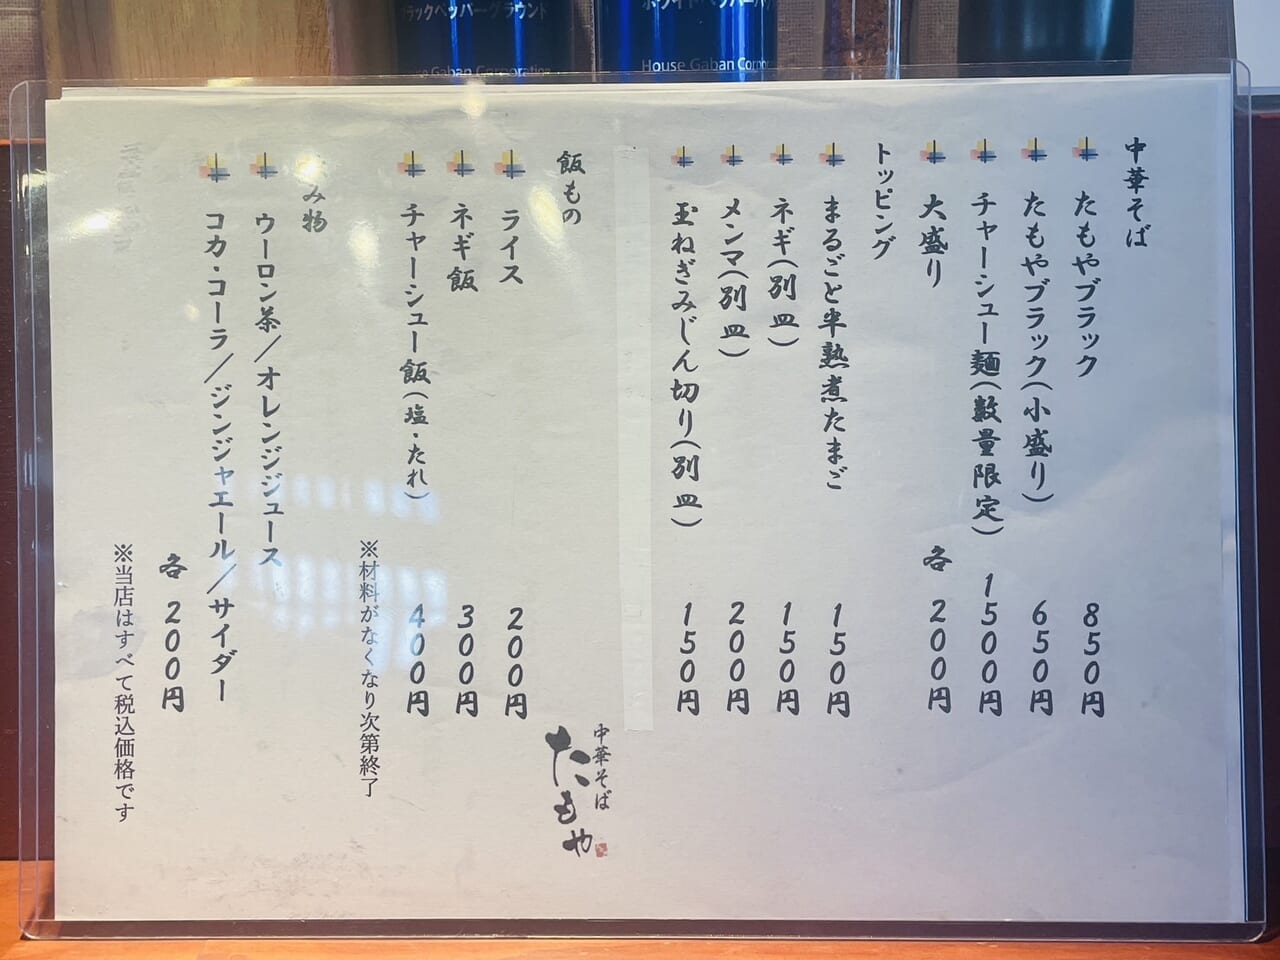 ブラックペッパーグラウンド
House Gaban Corporation
中華そば
たもやブラック 850円
たもやブラック(小盛り) 650円
チャーシュー麺(数量限定) 1500円
大盛り 各200円
トッピング
まるごと半熟煮たまご 150円
ネギ(別皿) 150円
メンマ(別皿) 200円
玉ねぎみじん切り(別皿) 150円
中華そば
たもや
飯もの
ライス 200円
ネギ飯 300円
チャーシュー飯(塩・たれ) 400円
※材料がなくなり次第終了
み物
ウーロン茶/オレンジジュース
コカ・コーラ/ジンジャエール/サイダー
各200円
※当店はすべて税込価格です